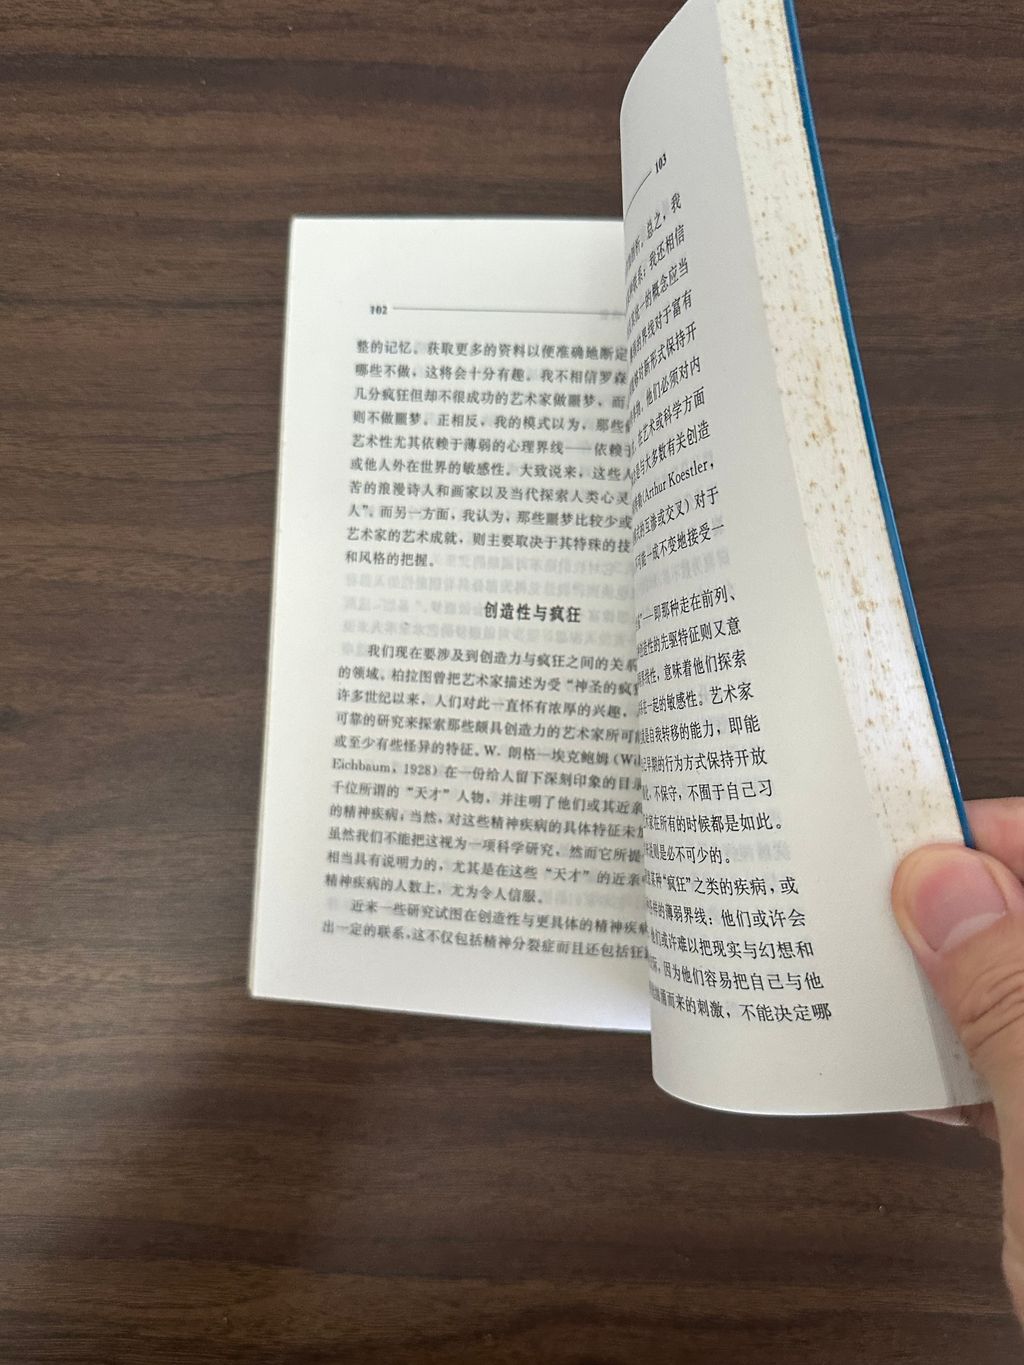 102
整的记忆。获取更多的资料以便准确地断定
哪些不做，这将会十分有趣。我不相信罗森
几分疯狂但却不很成功的艺术家做噩梦，而
则不做噩梦。正相反，我的模式以为，那些
艺术性尤其依赖于薄弱的心理界线——依赖于
或他人外在世界的敏感性。大致说来，这些人
苦的浪漫诗人和画家以及当代探索人类心灵
人”。而另一方面，我认为，那些噩梦比较少或
艺术家的艺术成就，则主要取决于其特殊的技
和风格的把握。
创造性与疯狂
我们现在要涉及到创造力与疯狂之间的关
的领域。柏拉图曾把艺术家描述为受“神圣的疯
许多世纪以来，人们对此一直怀有浓厚的兴趣，
可靠的研究来探索那些颇具创造力的艺术家所可
或至少有些怪异的特征。W. 朗格—埃克鲍姆（Wil
Eichbaum, 1928）在一份给人留下深刻印象的目录
千位所谓的“天才”人物，并注明了他们或其近亲
的精神疾病；当然，对这些精神疾病的具体特征未
虽然我们不能把这视为一项科学研究，然而它所提
相当具有说明力的，尤其是在这些“天才”的近亲
精神疾病的人数上，尤为令人信服。
近来一些研究试图在创造性与更具体的精神疾
出一定的联系，这不仅包括精神分裂症而且还包括狂
103
剖析。总之，我
联系；我还相信
统一的概念应当
的界线对于富有
对新形式保持开
事物，他们必须对内
，在艺术或科学方面
是与大多数有关创造
(Arthur Koestler,
式的互渗或交叉）对于
可能一成不变地接受一
”—即那种走在前列、
创造性的先驱特征则又意
界线性，意味着他们探索
在一起的敏感性。艺术家
是自我转移的能力，即能
己早期的行为方式保持开放
，不保守，不囿于自己习
术家在所有的时候都是如此。
则是必不可少的。
某种“疯狂”之类的疾病，或
样的薄弱界线：他们或许会
他们或许难以把现实与幻想和
，因为他们容易把自己与他
涌而来的刺激，不能决定哪